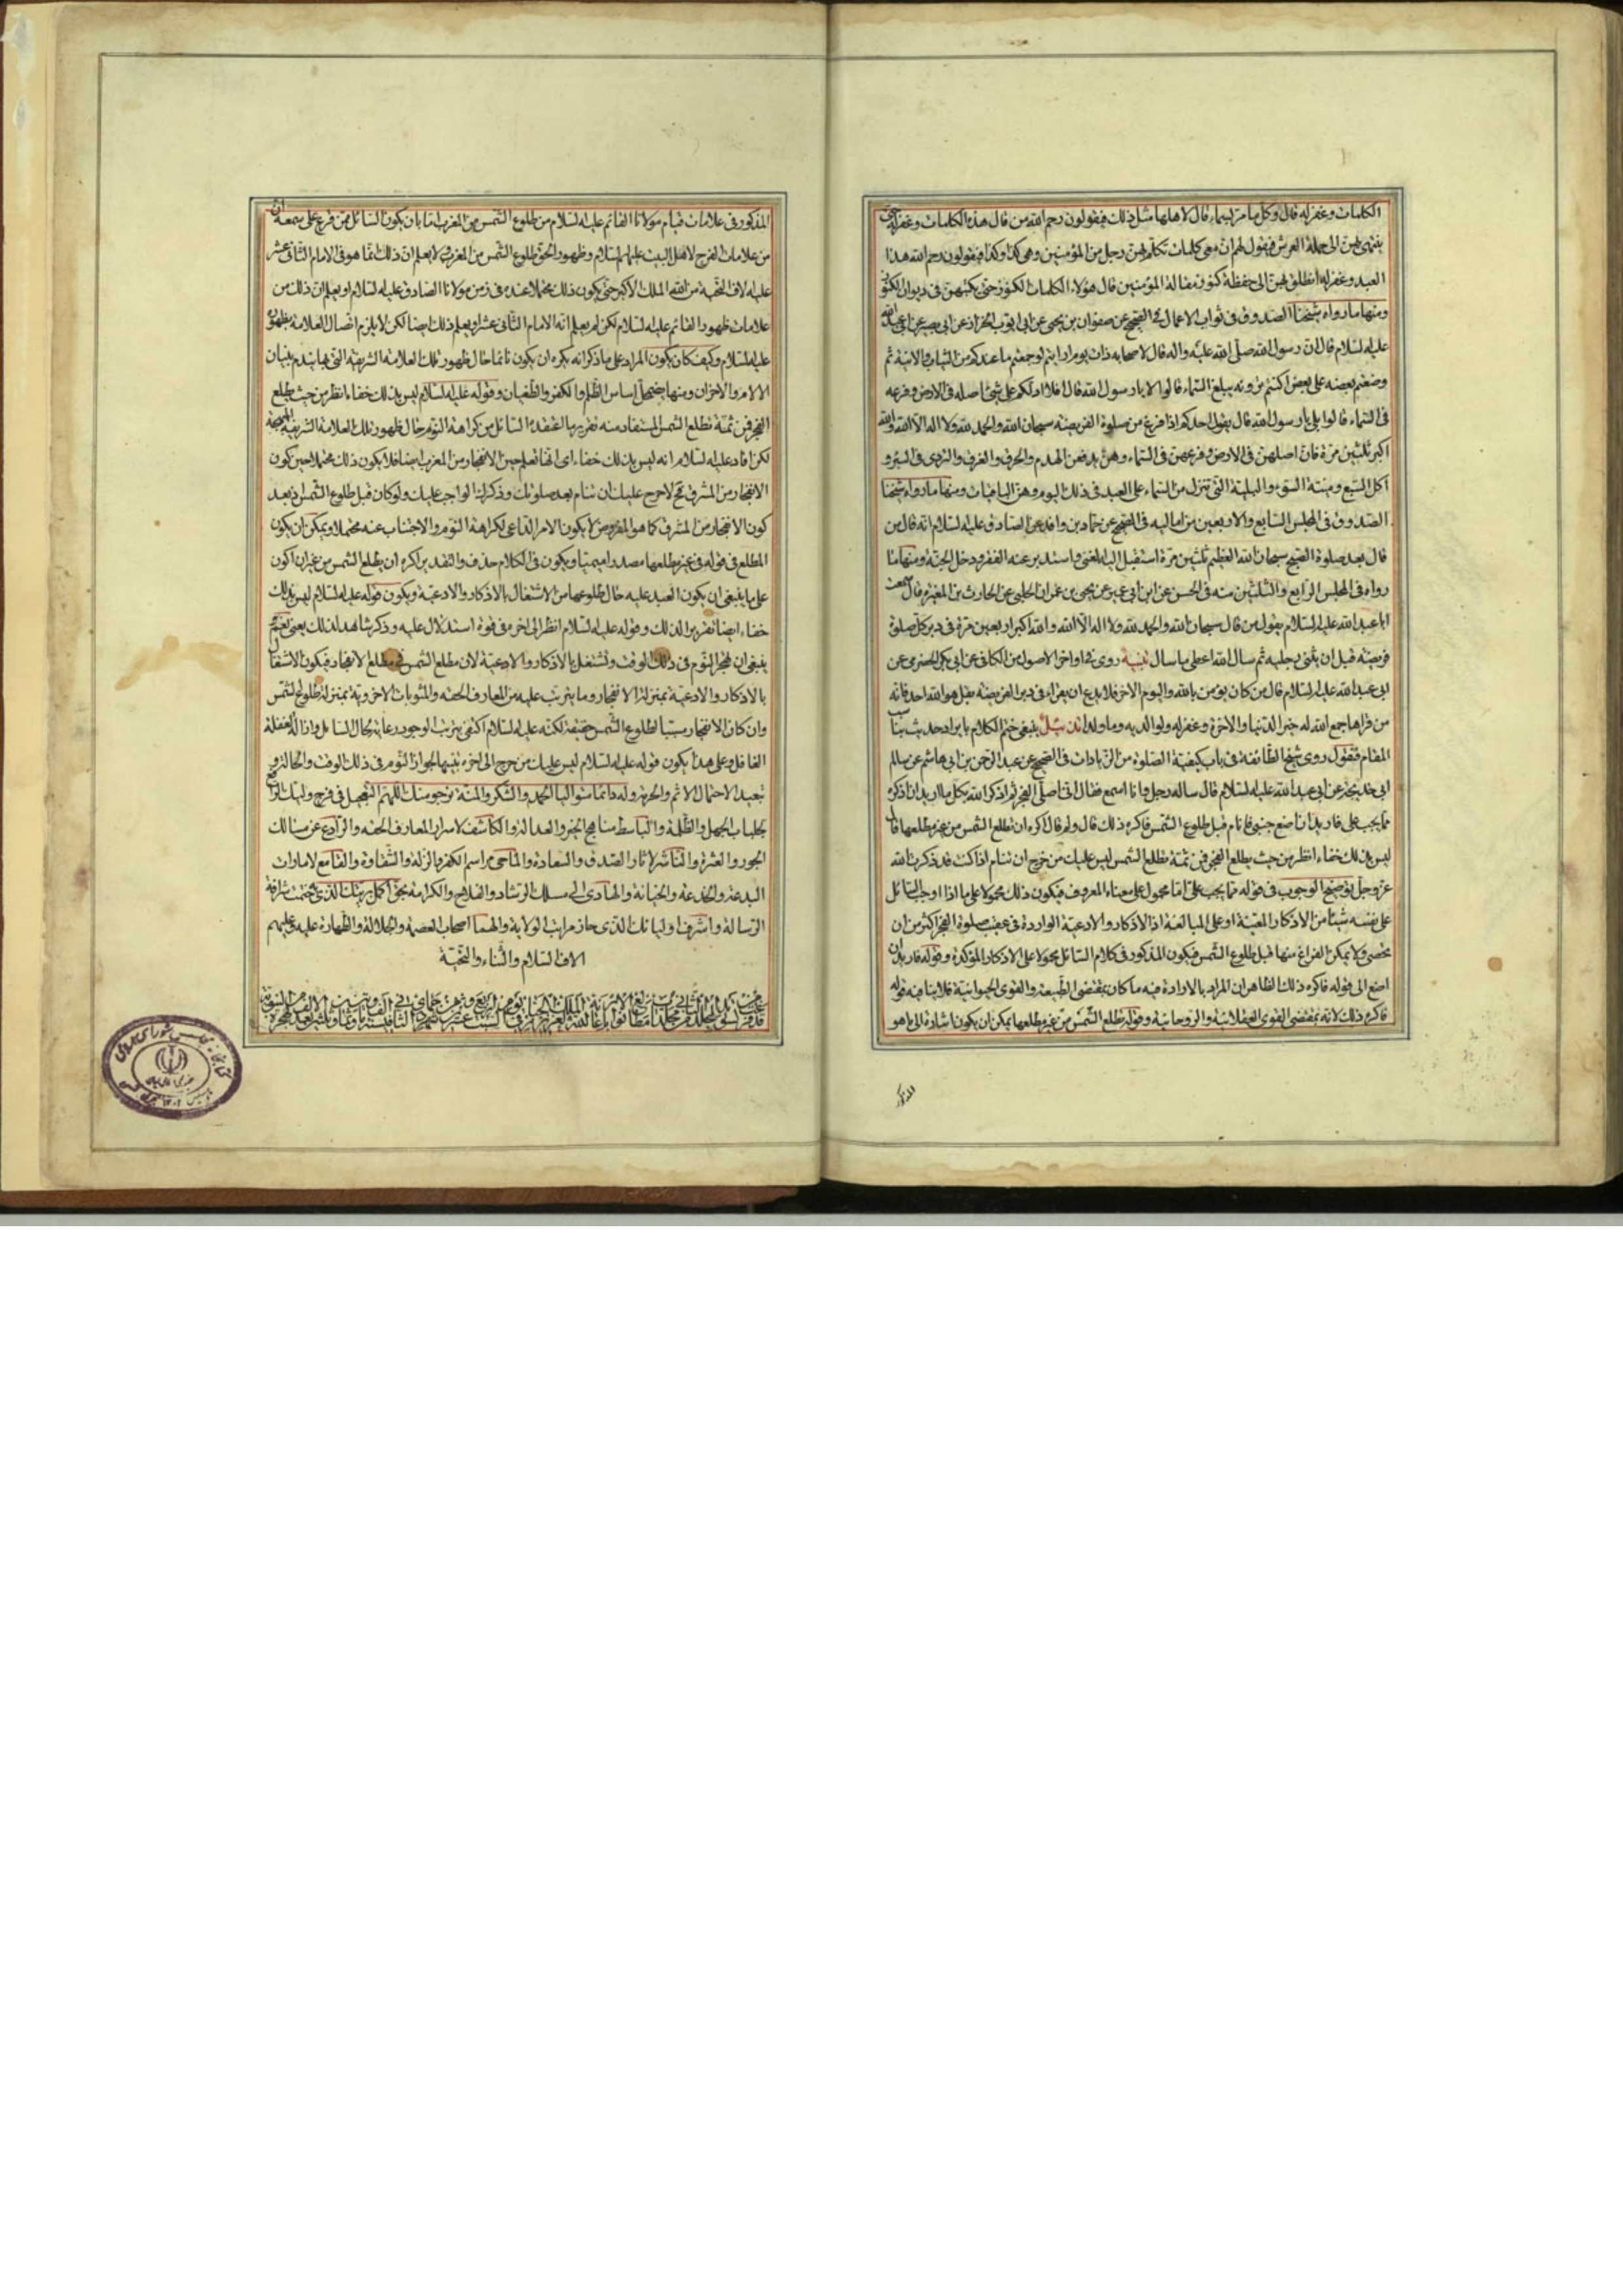 الكلمات وغفر له قال وكل ما مر بسماء قال لاهلها مثل ذلك فيقولون رحم الله من قال هذه الكلمات وغفر له حتى
ينتهى بهن الى حملة العرش فيقول لهم ان معى كلمات تكلم بهن رجل من المؤمنين وهى كذا وكذا فيقولون رحم الله هذا
العبد وغفر له انطلق بهن الى حفظة كنوز مقالة المؤمنين فان هؤلاء الكلمات الكنوز حتى يكتبهن فى ديوان الكنوز
ومنها ما رواه شيخنا الصدوق فى ثواب الاعمال فى الصحيح عن صفوان بن يحيى عن ابى ايوب الخزاز عن ابى بصير عن ابى عبد الله
عليه السلام قال ان رسول الله صلى الله عليه واله قال لاصحابه ذات يوم ارايتم لو جمعتم ما عندكم من الثياب والانية ثم
وضعتم بعضه على بعض اكنتم ترونه يبلغ السماء قالوا لا يا رسول الله قال افلا ادلكم على شئ اصله فى الارض وفرعه
فى السماء قالوا بلى يا رسول الله قال يقول احدكم اذا فرغ من صلوة الفريضة سبحان الله والحمد لله ولا اله الا الله والله
اكبر ثلثين مرة فان اصلهن فى الارض وفرعهن فى السماء وهن يدفعن الهدم والحرق والغرق والتردى فى البئر و
اكل السبع وميتة السوء والبلية التى تنزل من السماء على العبد فى ذلك اليوم وهن الباقيات ومنها ما رواه شيخنا
الصدوق فى المجلس السابع والاربعين من اماليه فى الصحيح عن حماد بن واقد عن الصادق عليه السلام انه قال من
قال بعد صلوة الصبح سبحان الله العظيم ثلثين مرة استقبل الغنى واستدبر عنه الفقر ودخل الجنة ومنها ما
رواه فى المجلس الرابع والثلثين منه فى الحسن عن ابن ابى عمير عن يحيى بن عمران الحلبى عن الحارث بن المغيرة قال سمعت
ابا عبد الله عليه السلام يقول من قال سبحان الله والحمد لله ولا اله الا الله والله اكبر اربعين مرة فى دبر كل صلوة
فريضة قبل ان يثنى رجليه ثم سال الله اعطى ما سال تنبيه روى فى اواخر الاصول من الكافى عن ابى بكر الحضرمى عن
ابى عبد الله عليه السلام قال من كان يؤمن بالله واليوم الاخر فلا يدع ان يقرا فى دبر الفريضة بقل هو الله احد فانه
من قراها جمع الله له خير الدنيا والاخرة وغفر له ولوالديه وما ولدا تذييل ينبغى ختم الكلام بايراد حديث يناسب
المقام فنقول روى شيخ الطائفة فى باب كيفية الصلوة من الزيادات فى الصحيح عن عبد الرحمن بن ابى هاشم عن سالم
ابى خديجة عن ابى عبد الله عليه السلام قال ساله رجل وانا اسمع فقال انى اصلى الفجر ثم اذكر الله بكل ما اريد ان اذكره
مما يجب على فاريد ان اضع جنبى فانام قبل طلوع الشمس فاكره ذلك قال ولم قال اكره ان تطلع الشمس من غير مطلعها قال
ليس بذلك خفاء انظر من حيث يطلع الفجر فمن ثمة مطلع الشمس ليس عليك من حرج ان تنام اذا كنت قد ذكرت الله
عز وجل توضيح الوجوب فى قوله مما يجب على اما محمول على معناه المعروف فيكون ذلك محمولا على ما اذا اوجب السائل
على نفسه شيئا من الاذكار المعينة او على المبالغة اذ الاذكار والادعية الواردة فى عقيب صلوة الفجر اكثر من ان
تحصى ولا يمكن الفراغ منها قبل طلوع الشمس فيكون المذكور فى كلام السائل محمولا على الاذكار المؤكدة وقوله فاريد ان
اضع الى قوله فاكره ذلك الظاهر ان المراد بالارادة فيه ما كان بمقتضى الطبيعة والقوى الحيوانية فلا ينافيه قوله
فاكره ذلك لانه بمقتضى القوى العقلانية والروحانية وقوله تطلع الشمس من غير مطلعها يمكن ان يكون اشارة الى ما هو
المذكور
المذكور فى علامات قيام مولانا القائم عليه السلام من طلوع الشمس من المغرب اما بان يكون السائل ممن قرع على سمعه ان
من علامات الفرج لاهل البيت عليهم السلام وظهور الحق طلوع الشمس من المغرب ولا يعلم ان ذلك مما هو فى الامام الثانى عشر
عليه الاف التحية من الله الملك الاكبر حتى يكون ذلك محتملا عنده فى زمن مولانا الصادق عليه السلام او يعلم ان ذلك من
علامات ظهور القائم عليه السلام لكن لم يعلم انه الامام الثانى عشر او يعلم ذلك ايضا لكن لا يلزم اتصال العلامة بظهوره
عليه السلام وكيف كان يكون المراد على ما ذكر انه يكره ان يكون نائما حال ظهور تلك العلامة الشريفة التى بها ينهدم بنيان
الالام والاحزان ومنها يضمحل اساس الظلم والكفر والطغيان وقوله عليه السلام ليس بذلك خفاء انظر من حيث يطلع
الفجر فمن ثمة تطلع الشمس المستفاد منه تقريرها اعتقده السائل من كراهة النوم حال ظهور تلك العلامة الشريفة
لكن افاد عليه السلام انه ليس بذلك خفاء اى
الانفجار من المشرق فح لا حرج عليك ان تنام بعد صلوتك وذكرك الواجب عليك ولو كان قبل طلوع الشمس اذ بعد
كون الانفجار من المشرق كما هو المفروض لا يكون الامر الداعى لكراهة النوم والاجتناب عنه محتملا ويمكن ان يكون
المطلع فى قوله فى غير مطلعها مصدرا ميميا ويكون فى الكلام حذف والتقدير اكره ان يطلع الشمس من غير ان اكون
على ما ينبغى ان يكون العبد عليه حال طلوعها من الاشتغال بالاذكار والادعية ويكون قوله عليه السلام ليس بذلك
خفاء ايضا تقريرا لذلك وقوله عليه السلام انظر الى اخره فى قوة استدلال عليه وذكر شاهد لذلك يعنى نعم
ينبغى ان تهجر النوم فى ذلك الوقت وتشتغل بالاذكار والادعية لان مطلع الشمس فى مطلع الانفجار فيكون الاشتغال
بالاذكار والادعية بمنزلة الانفجار وما يترتب عليه من المعارف الحقة والمثوبات الاخروية بمنزلة طلوع الشمس
وان كان الانفجار مسببا لطلوع الشمس حقيقة لكنه عليه السلام اكتفى بترتب الوجود رعاية بحال السائل وازالة لغفلة
الغافل وعلى هذا يكون قوله عليه السلام ليس عليك من حرج الى اخره تنبيها لجواز النوم فى ذلك الوقت والحالة و
تبعيد الاحتمال الاثم والحرمة وله دائما متواليا الحمد والشكر والمنة نرجو منك اللهم التعجيل فى فرج وليك الرافع
لجلباب الجهل والظلمة والباسط مناهج الخير والعدالة والكاشف لاسرار المعارف الحقة والرادع عن مسالك
الجور والعثرة والناشر لاثار الصدق والسعادة والماحى مراسم الكفر والزلة والشقاوة والقامع لامارات
البدعة والخدعة والخيانة والهادى الى مسلك الرشاد والفلاح والكرامة بحق اكمل بريتك الذى ختمت به شرافة
الرسالة واشرف اوليائك الذى حاز مراتب الولاية والهما اصحاب العصمة والجلالة والطهارة عليه وعليهم
الاف السلام والثناء والتحية